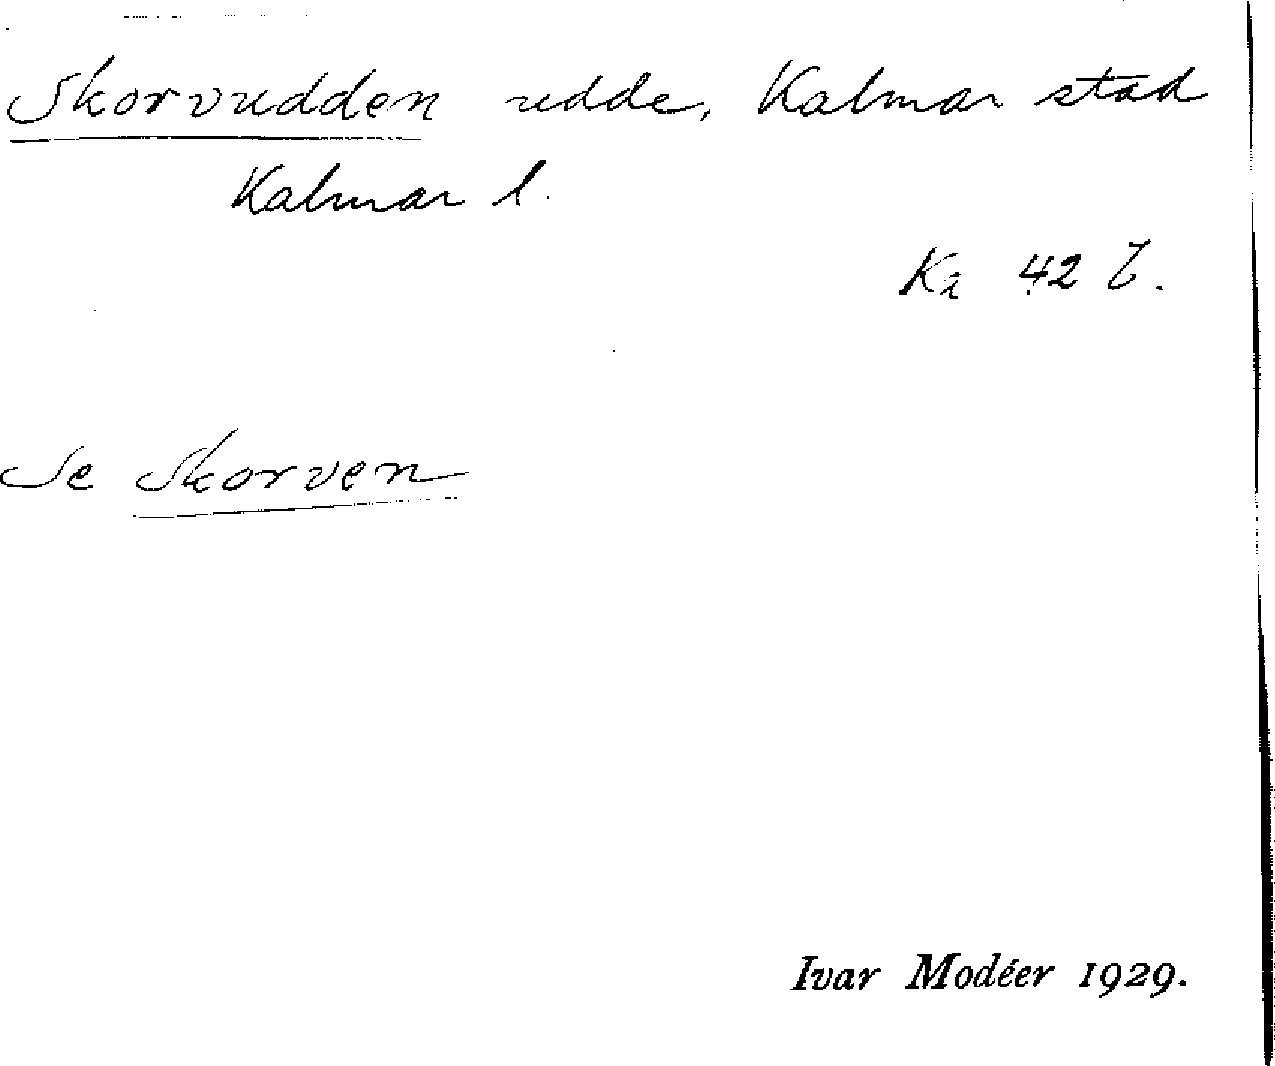 Skorvudden udde, Kalmar stad
Kalmar l.
Ka 42 b.
Se Skorven
Ivar Modéer 1929.